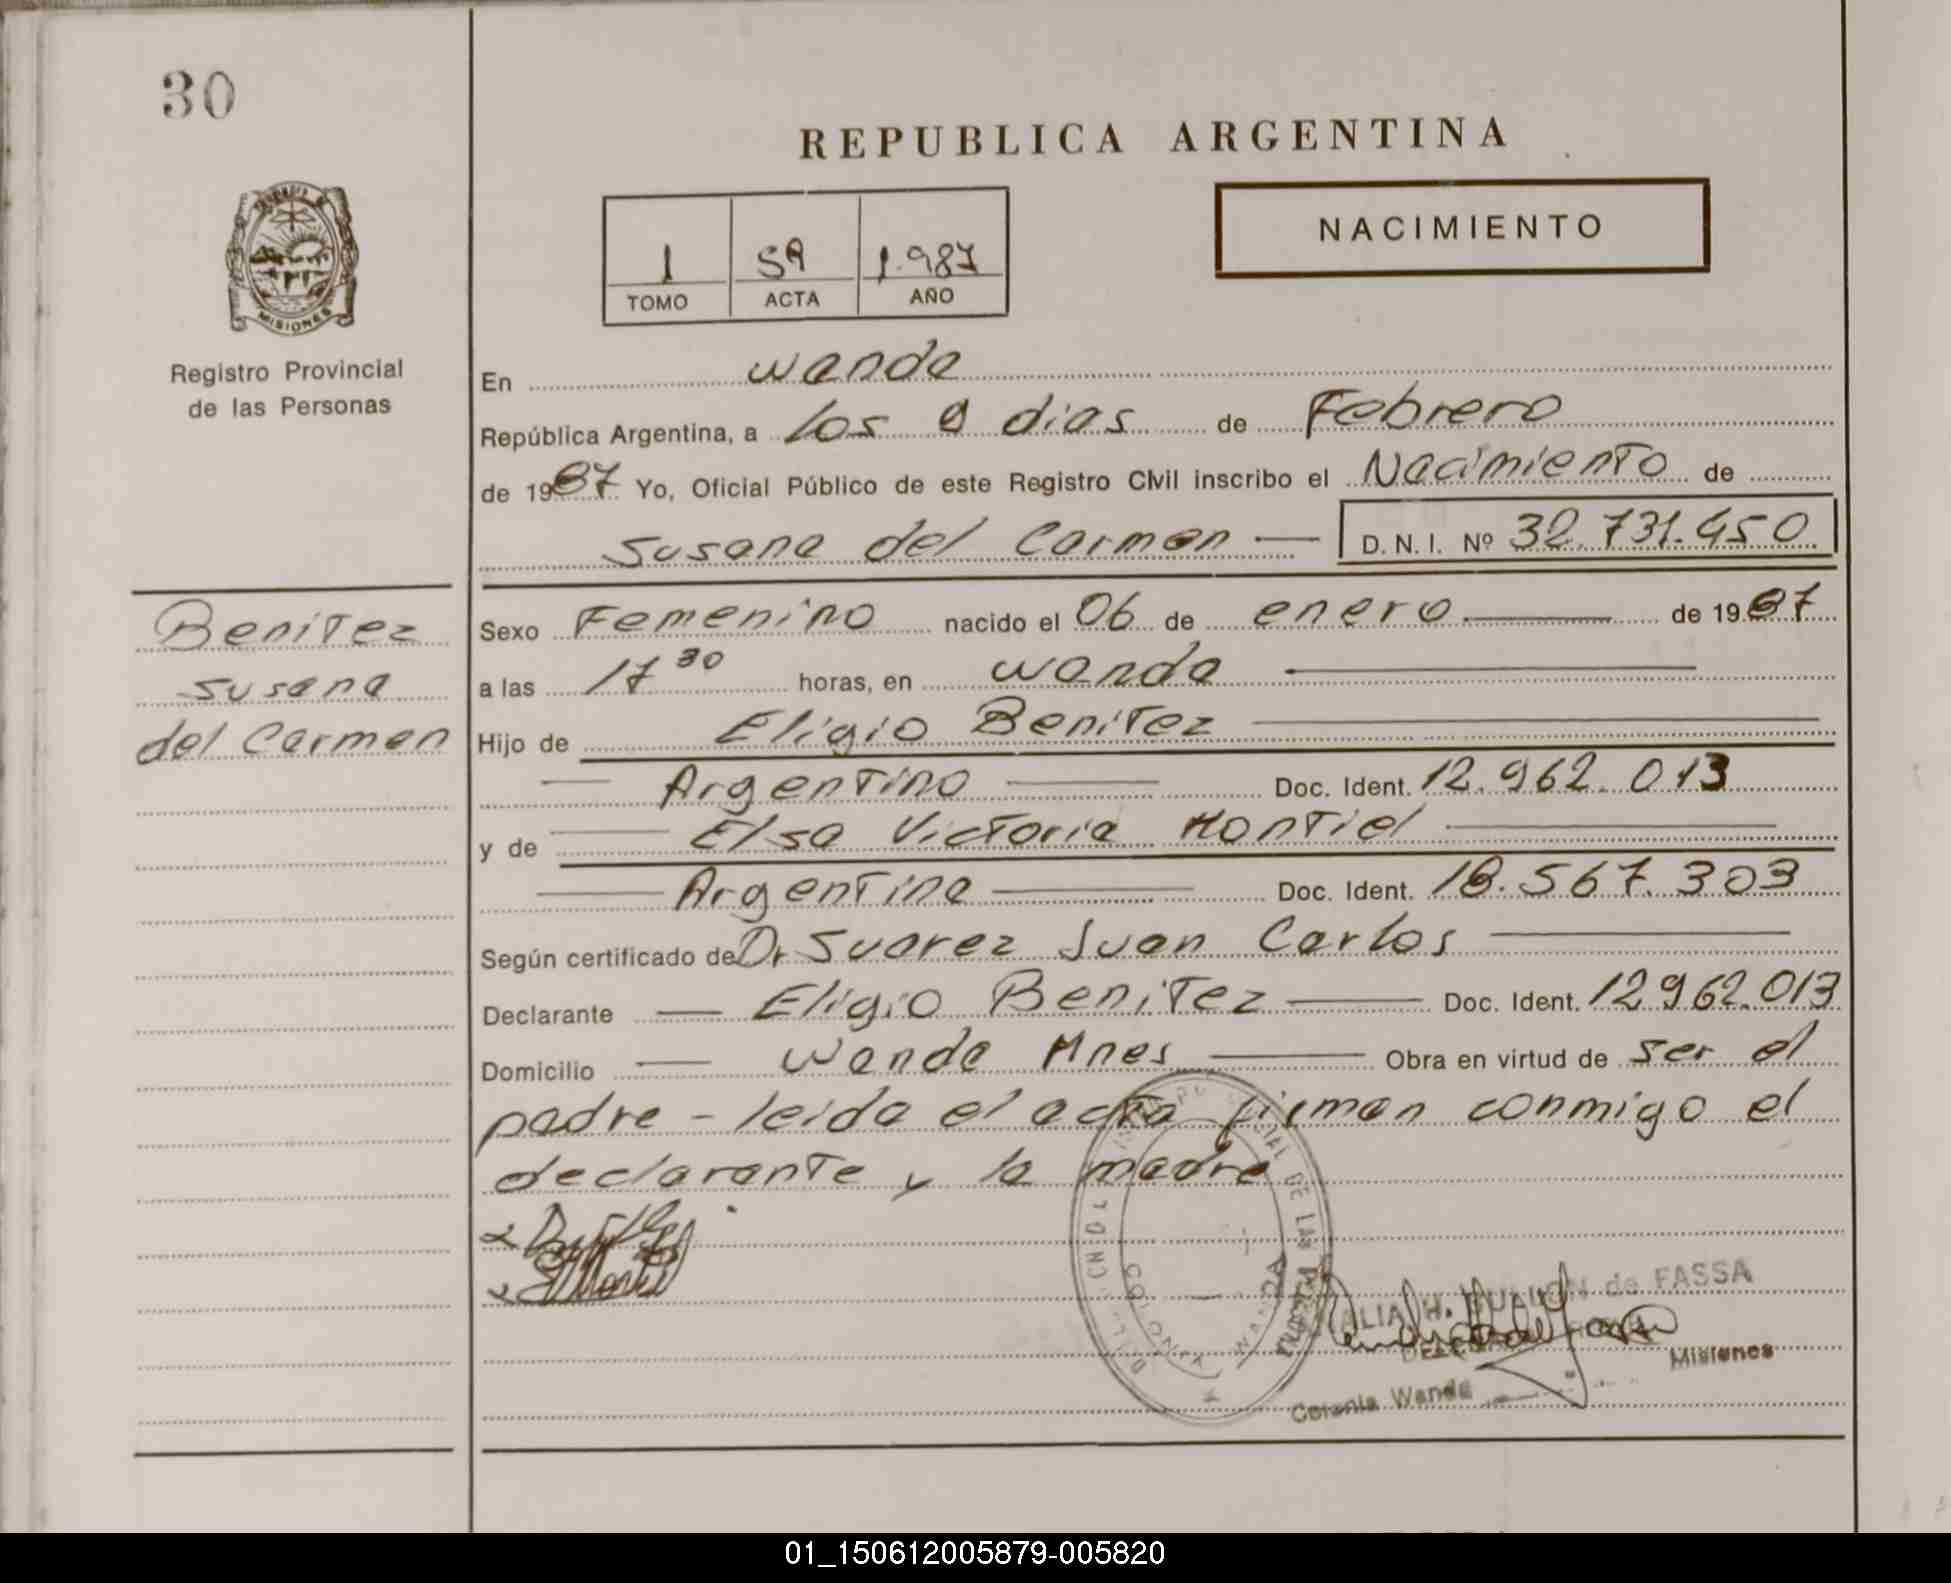 30
REPUBLICA ARGENTINA
NACIMIENTO
1 59 1.987
TOMO ACTA AÑO
MISIONES
Registro Provincial
de las Personas
En wanda
República Argentina, a los 9 dias de Febrero
de 1987 Yo, Oficial Público de este Registro Civil inscribo el Nacimiento de
Susana del Carmen — D.N.I. Nº 32.731.450
Benitez
Susana
del Carmen
Sexo Femenino nacido el 06 de enero de 1987
a las 17 30 horas, en wanda
Hijo de Eligio Benitez
Argentino Doc. Ident. 12.962.013
y de Elsa Victoria Montiel
Argentina Doc. Ident. 18.567.303
Según certificado de Dr Suarez Juan Carlos
Declarante Eligio Benitez Doc. Ident. 12962.013
Domicilio Wanda Mnes Obra en virtud de ser el
padre - leida el acta firman conmigo el
declarante y la madre
de FASSA
Misiones
Colonia Wanda
01_150612005879-005820